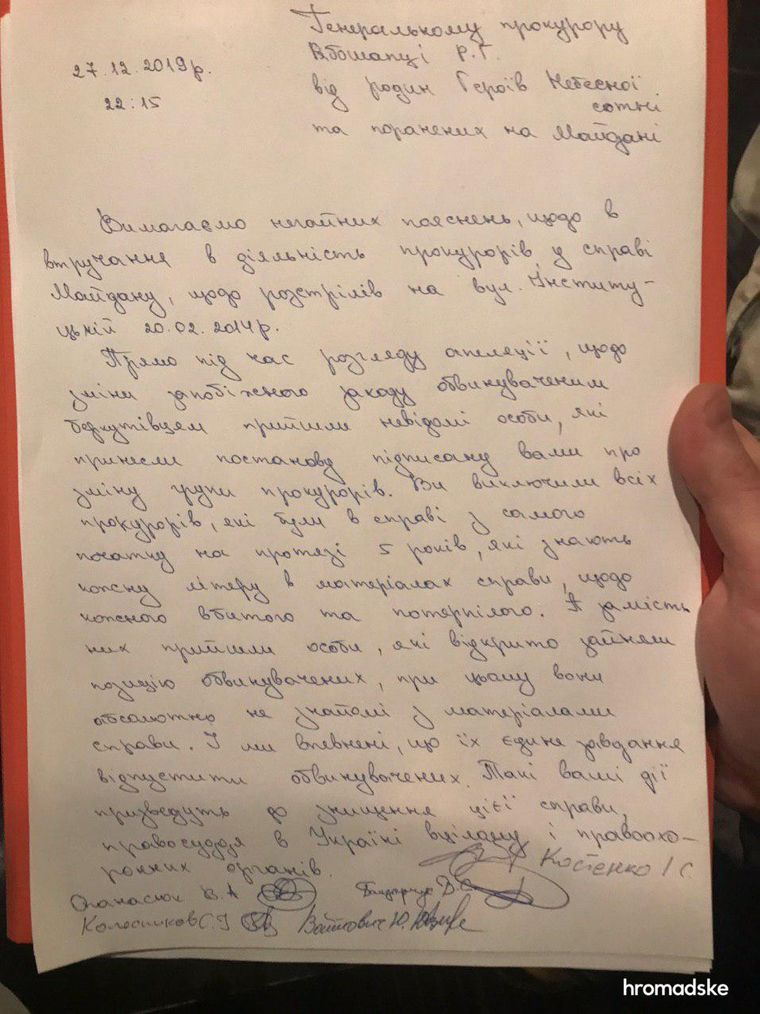 Генеральному прокурору
Вбошапці Р.Г.
27.12.2019р.
22:15
від родин Героїв Небесної
сотні
та поранених на Майдані
Вимагаємо негайних пояснень, щодо в
втручання в діяльність прокурорів у справі
Майдану, щодо розстрілів на вул. Институ-
цькій 20.02.2014р.
Прямо під час розгляду апеляції, щодо
зміни запобіжного заходу обвинуваченим
беркутівцем прийшли невідомі особи, які
принесли постанову підписану вами про
зміну групи прокурорів. Ви виключили всіх
прокурорів, які були в справі з самого
початку на протязі 5 років, які знають
кожну літеру в матеріалах справи, щодо
кожного вбитого та потерпілого. А замість
них прийшли особи, які відкрито зайняли
позицію обвинувачених, при цьому вони
абсолютно не знайомі з матеріалами
справи. І ми впевнені, що їх єдине завдання
відпустити обвинувачених. Такі ваші дії
призведуть до знищення цієї справи,
правосуддя в Україні вцілому і правоохо-
ронних органів.
Костенко І С.
Опанасюк В.А
Колесников С.І Войтович Ю.
hromadske